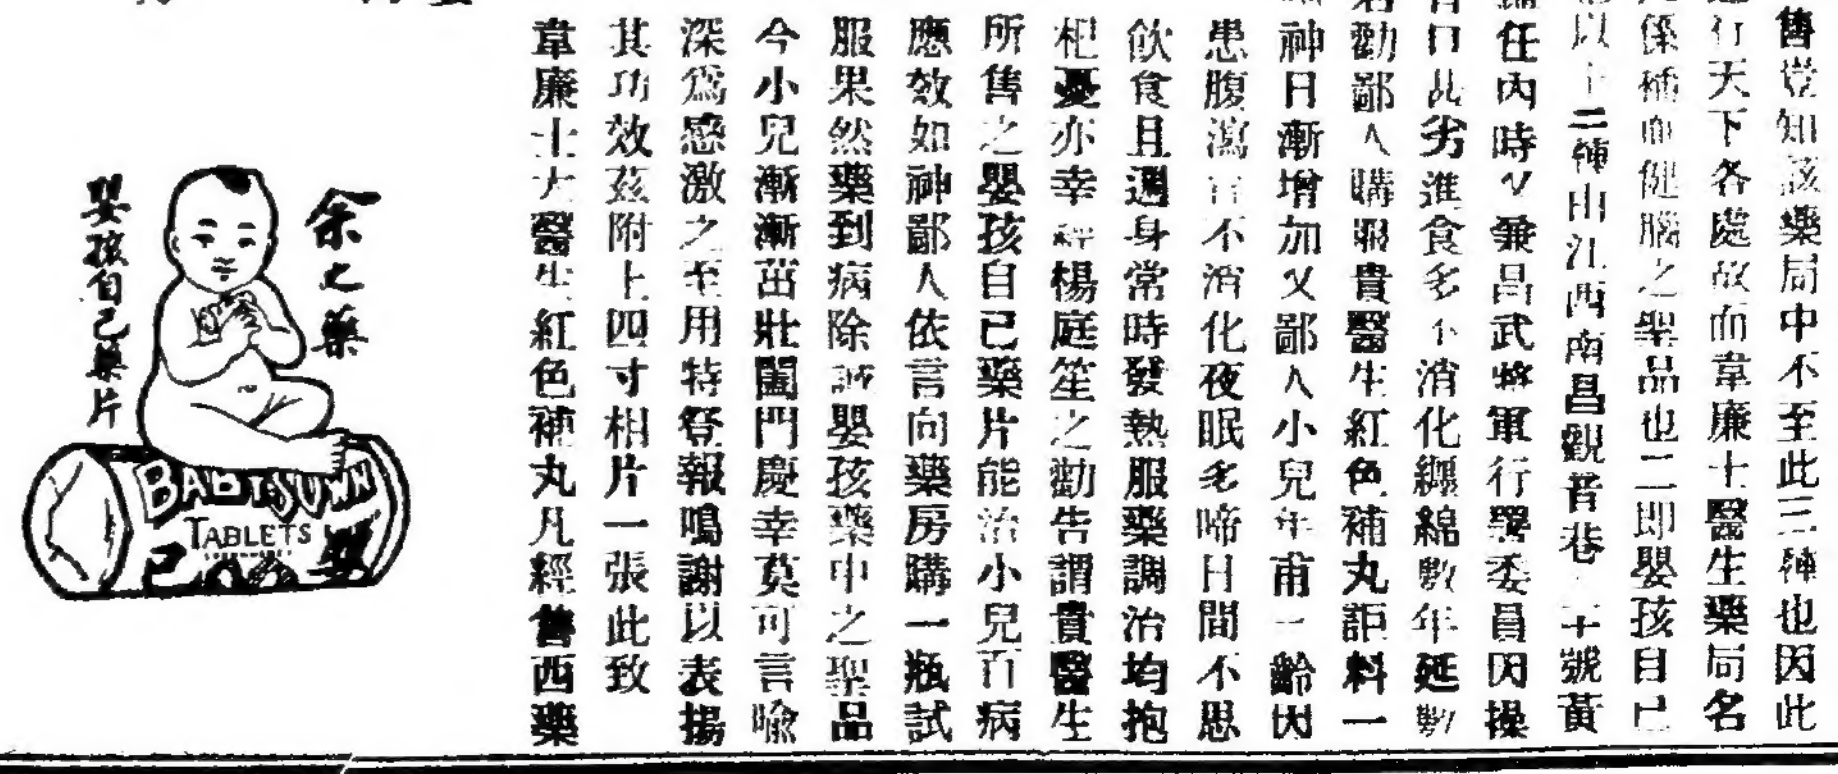 售豈知該藥局中不至此三種也因此
行天下各處故而韋廉士醫生藥局名
係補血健腦之聖品也二即嬰孩自己
以下二種由江西南昌觀音巷二十號黃
任內時又兼昌武將軍行署委員因操
口甚劣進食多不消化纏綿數年延數
勸鄙人購服貴醫生紅色補丸詎料一
神日漸增加又鄙人小兒年甫一齡因
患腹瀉百不消化夜眠多啼日間不思
飲食且遇身常時發熱服藥調治均抱
杞憂亦幸經楊庭笙之勸告謂貴醫生
所售之嬰孩自己藥片能治小兒百病
應效如神鄙人依言向藥房購一瓶試
服果然藥到病除誠嬰孩藥中之聖品
今小兒漸漸茁壯闔門慶幸莫可言喻
深爲感激之至用特登報鳴謝以表揚
其功效茲附上四寸相片一張此致
韋廉士大醫生紅色補丸凡經售西藥
余之藥
嬰孩自己藥片
TABLETS
嬰
己